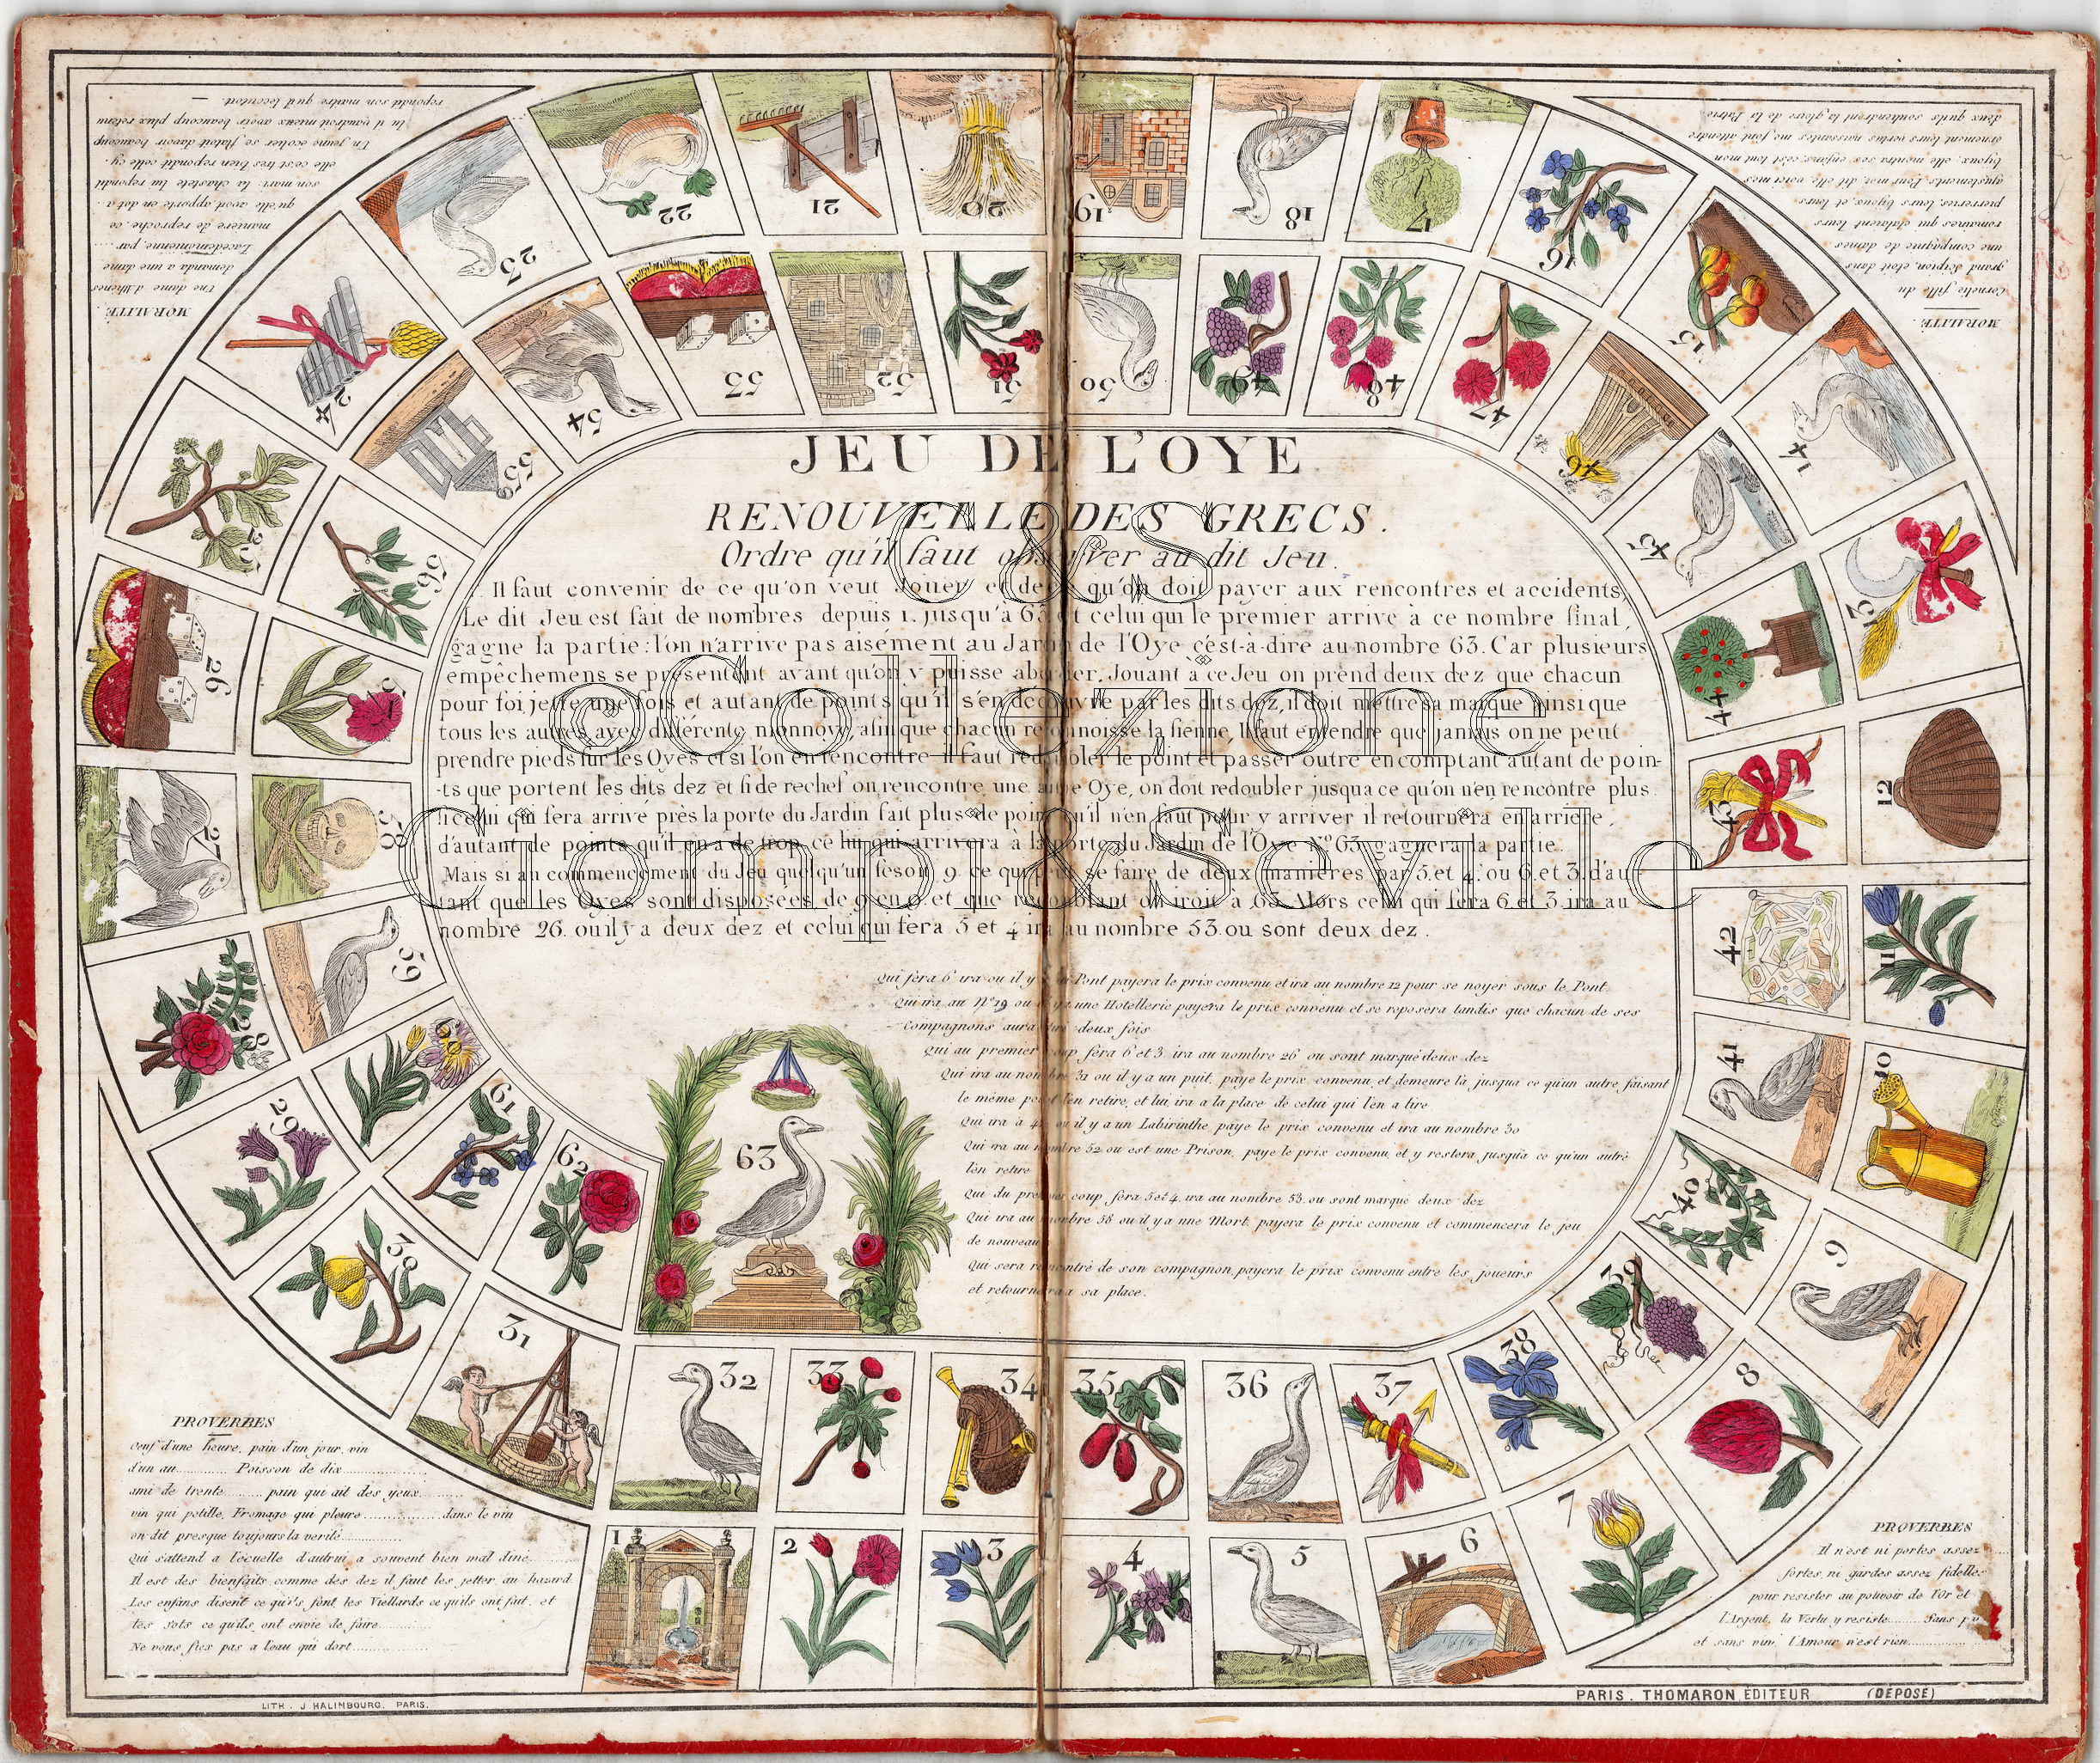 JEU DE L'OYE
RENOUVELLE DES GRECS.
Ordre qu'il faut observer au dit Jeu.
Il faut convenir de ce qu'on veut Jouer et de qu'on doit payer aux rencontres et accidents,
Le dit Jeu est fait de nombres depuis 1. jusqu'à 63 et celui qui le premier arrive à ce nombre final,
gagne la partie: l'on n'arrive pas aisément au Jardin de l'Oye c'est-à-dire au nombre 63. Car plusieurs
empêchemens se présentent avant qu'on y puisse aborder. Jouant à ce Jeu on prend deux dez que chacun
pour foi, jette une fois et autant de points qu'il s'en découvre par les dits dez, il doit mettre sa marque ainsi que
tous les autres avec différente monnoye, afin que chacun reconnoisse la sienne, Il faut entendre que jamais on ne peut
prendre pieds sur les Oyes et si l'on en rencontre il faut redoubler le point et passer outre en comptant autant de poin-
-ts que portent les dits dez et si de rechef on rencontre une autre Oye, on doit redoubler jusqua ce qu'on n'en rencontre plus
si celui qui fera arrivé près la porte du Jardin fait plus de points qu'il n'en faut pour y arriver il retournera en arriere,
d'autant de points qu'il en a de trop, ce lui qui arrivera à la porte du Jardin de l'Oye N° 63, gagnera la partie.
Mais si au commencement du Jeu quelqu'un fesoit 9. ce qui peut se faire de deux manières par 5. et 4. ou 6. et 3. d'au-
tant que les Oyes sont disposées de 9 en 9. et que redoublant on iroit à 63. Alors celui qui fera 6. et 3. ira au
nombre 26. ou il y a deux dez et celui qui fera 5 et 4 ira au nombre 53. ou sont deux dez.
Qui fera 6 ira ou il y a un Pont payera le prix convenu et ira au nombre 12 pour se noyer sous le Pont.
Qui ira au N° 19 ou il y a une Hotellerie payera le prix convenu et se reposera tandis que chacun de ses
compagnons aura tiré deux fois
Qui au premier coup fera 6 et 3 ira au nombre 26 ou sont marqué deux dez
Qui ira au nombre 31 ou il y a un puit, paye le prix convenu, et demeure là, jusqua ce qu'un autre, faisant
le même point l'en retire, et lui, ira a la place de celui qui l'en a tire
Qui ira à 42 ou il y a un Labirinthe paye le prix convenu et ira au nombre 30
Qui ira au nombre 52 ou est une Prison, paye le prix convenu, et y restera jusqu'a ce qu'un autre
l'en retire
Qui du premier coup fera 5 et 4, ira au nombre 53. ou sont marqué deux dez
Qui ira au nombre 58 ou il y a nne Mort, payera le prix convenu et commencera le jeu
de nouveau
Qui sera rencontré de son compagnon payera le prix convenu entre les joueurs
et retournera a sa place.
MORALITÉ.
Une dame d'Athènes
demanda a une dame
Lacédémonienne, par
maniere de reproche, ce
qu'elle avoit apporté en dot a
son mari. la chasteté lui répondit
elle c'est très bien repondit celle cy.
Un jeune écolier se flatoit davoir beaucoup
lu il vaudroit mieux avoir beaucoup plus retenu
repondit son maitre qu'il l'ecoutoit.
MORALITÉ.
Cornelie fille du
grand Scipion, etoit dans
une compagnie de dames
romaines qui étaloient leurs
pierreries, leurs bijoux et leurs
ajustements. Pour moi, dit elle, voici mes
bijoux, elle montra ses enfans, c'est tout mon
ornement leurs vertus naissantes me font attendre
deux qu'ils soutiendront la gloire de la Patrie
PROVERBES
Oeuf d'une heure, pain d'un jour, vin
d'un an............ Poisson de dix...............
ami de trente........ pain qui ait des yeux........
vin qui petille, Fromage qui pleure...............dans le vin
on dit presque toujours la verité.............
Qui s'attend a l'écuelle d'autrui a souvent bien mal diné.........
Il est des bienfaits comme des dez il faut les jetter au hazard
Les enfans disent ce qu'i's font, les Viellards ce qu'ils ont fait, et
les sots ce qu'ils ont envie de faire..........
Ne vous fies pas a leau qui dort...............
PROVERBES
Il n'est ni portes assez
fortes, ni gardes assez fidelles
pour resister au pouvoir de l'Or et
L'Argent, la Vertu y resiste........Sans
et sans vin, l'Amour n'est rien................
1
2
3
4
5
6
7
8
9
10
11
12
13
14
15
16
17
18
19
20
21
22
23
24
25
26
27
28
29
30
31
32
33
34
35
36
37
38
39
40
41
42
43
44
45
46
47
48
49
50
51
52
53
54
55
56
57
58
59
61
62
63
LITH. J HALINBOURG. PARIS.
PARIS. THOMARON EDITEUR (DÉPOSÉ)
C&S
©Collezione
Ciompi&Seville